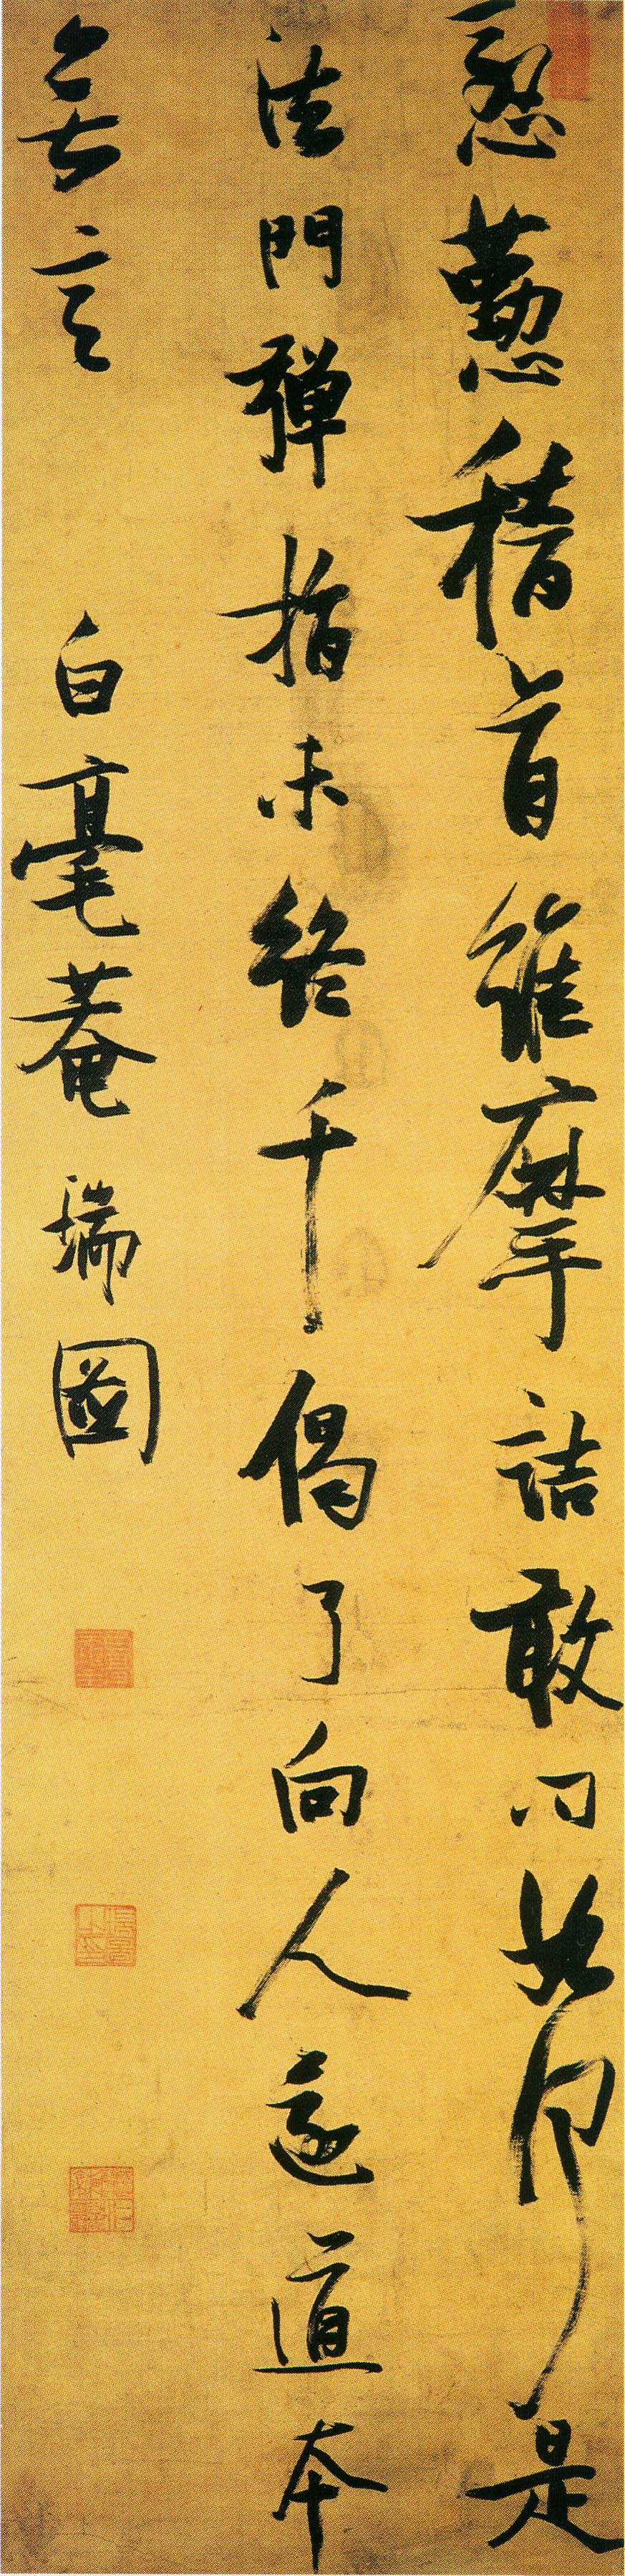 慇懃稽首維摩詰敢問如何是
法門彈指未終千偈了向人還道本
無言 白毫菴瑞圖